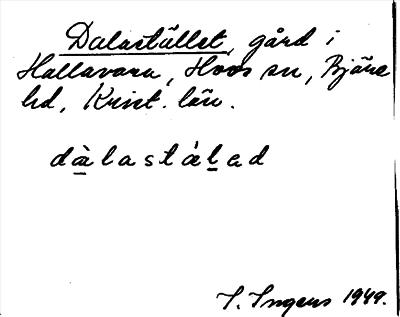 Dalastället, gård i
Hallavara, Hovs sn, Bjäre
hd, Krist. län.
dàlastálad
I. Ingers 1949.